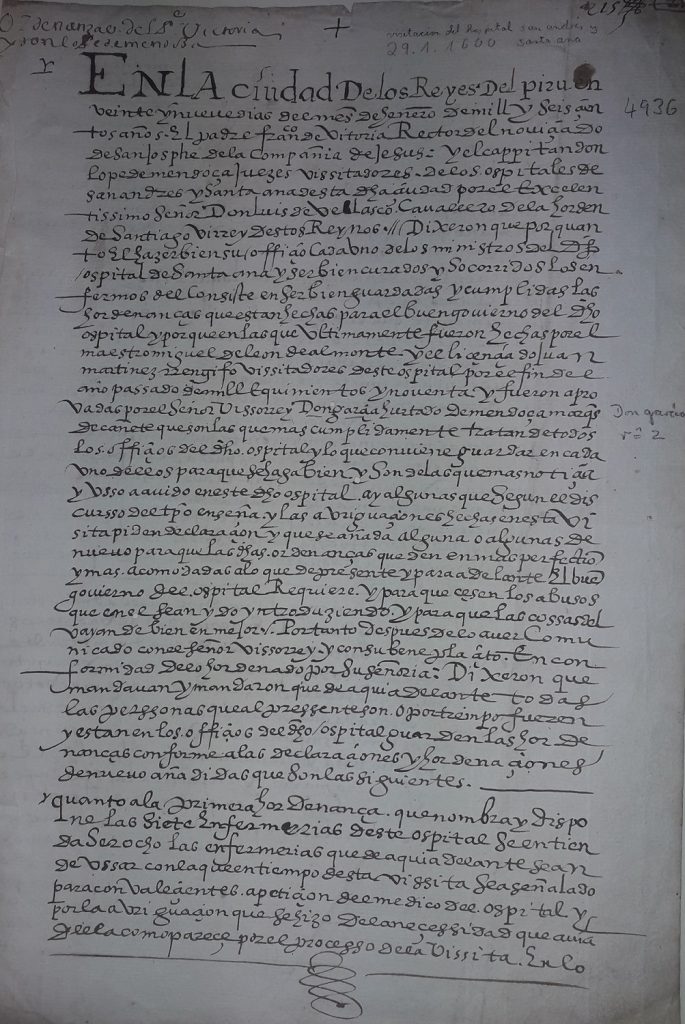 Ordenanzas de los Pe Victoria
y don Lope de mendossa
+
visitacion del hospital san andrés y
29.1.1600 santa ana
4936
EN LA ciudad De los Reyes Del piru en
veinte y nueve dias de el mes de henero de mill y seiscien
tos años. El padre franco de Vitoria Rector del noviciado
de san Josphe de la Compañia de Jesus: y el cappitan don
lope de mendoça Juezes vissitadores de los ospitales de
san andres y santa ana desta dha ciudad por el Excelen
tissimo Señor Don luis de Velasco, Cavallero de la horden
de Santiago Virrey destos Reynos // Dixeron que por quan
to el hazer bien su officio Cada uno de los ministros del dho
ospital de Santa ana y ser bien curados y Socorridos los en
fermos del Consiste en ser bien guardadas y cumplidas las
hordenanças que estan hechas para el buen govierno del dho
ospital y porque en las que Ultimamente fueron hechas por el
maestro miguel de leon de almonte y el licenciado Juan
martinez rrengifo vissitadores deste ospital por el fin de el
año passado de mill E quinientos y noventa y fueron apro
vadas por el Señor Vissorrey Don garcia hurtado de mendoça marqs
Don garcia
de canete que son las que mas cumplidamente tratan de todos
los officios del dho. ospital y lo que conviene guardar en cada
uno dellos para que se haga bien y son de las que mas noticia
y usso a avido en este dho ospital. ay algunas que segun el dis
cursso del tpo enseña y las averiguaciones hechas en esta vi
sita piden declaracion y que se añada alguna o algunas de
nuevo para que las dhas. ordenanças queden en mas perfectio
y mas acomodadas a lo que de presente y para adelante El buen
govierno del ospital Requiere. y para que cesen los abusos
que en el sean ydo yntroduziendo y para que las cossas del
vayan de bien en mejor. Por tanto despues de lo aver Comu
nicado con el señor vissorrey y con su beneplacito. En con
formidad de lo hordenado por su señoria: Dixeron que
mandavan y mandaron que de aqui adelante todas
las perssonas que al pressente son. o por tiempo fueren
y estan en los officios del dho ospital guarden las hor de
nanças conforme a las declaraciones y hordenaciones
de nuevo añadidas que son las siguientes.
y quanto a la primera hordenança. que nombra y dispo
ne las siete Enfermerias deste ospital Se entien
da Ser ocho las enfermerias que de aqui adelante sean
de ussar con la que en tiempo desta vissita sea señalado
para convalecientes. a peticion del medico del ospital y
por la averiguacion que se hizo de la necessidad que avia
della como parece por el processo de la Vissita. En lo